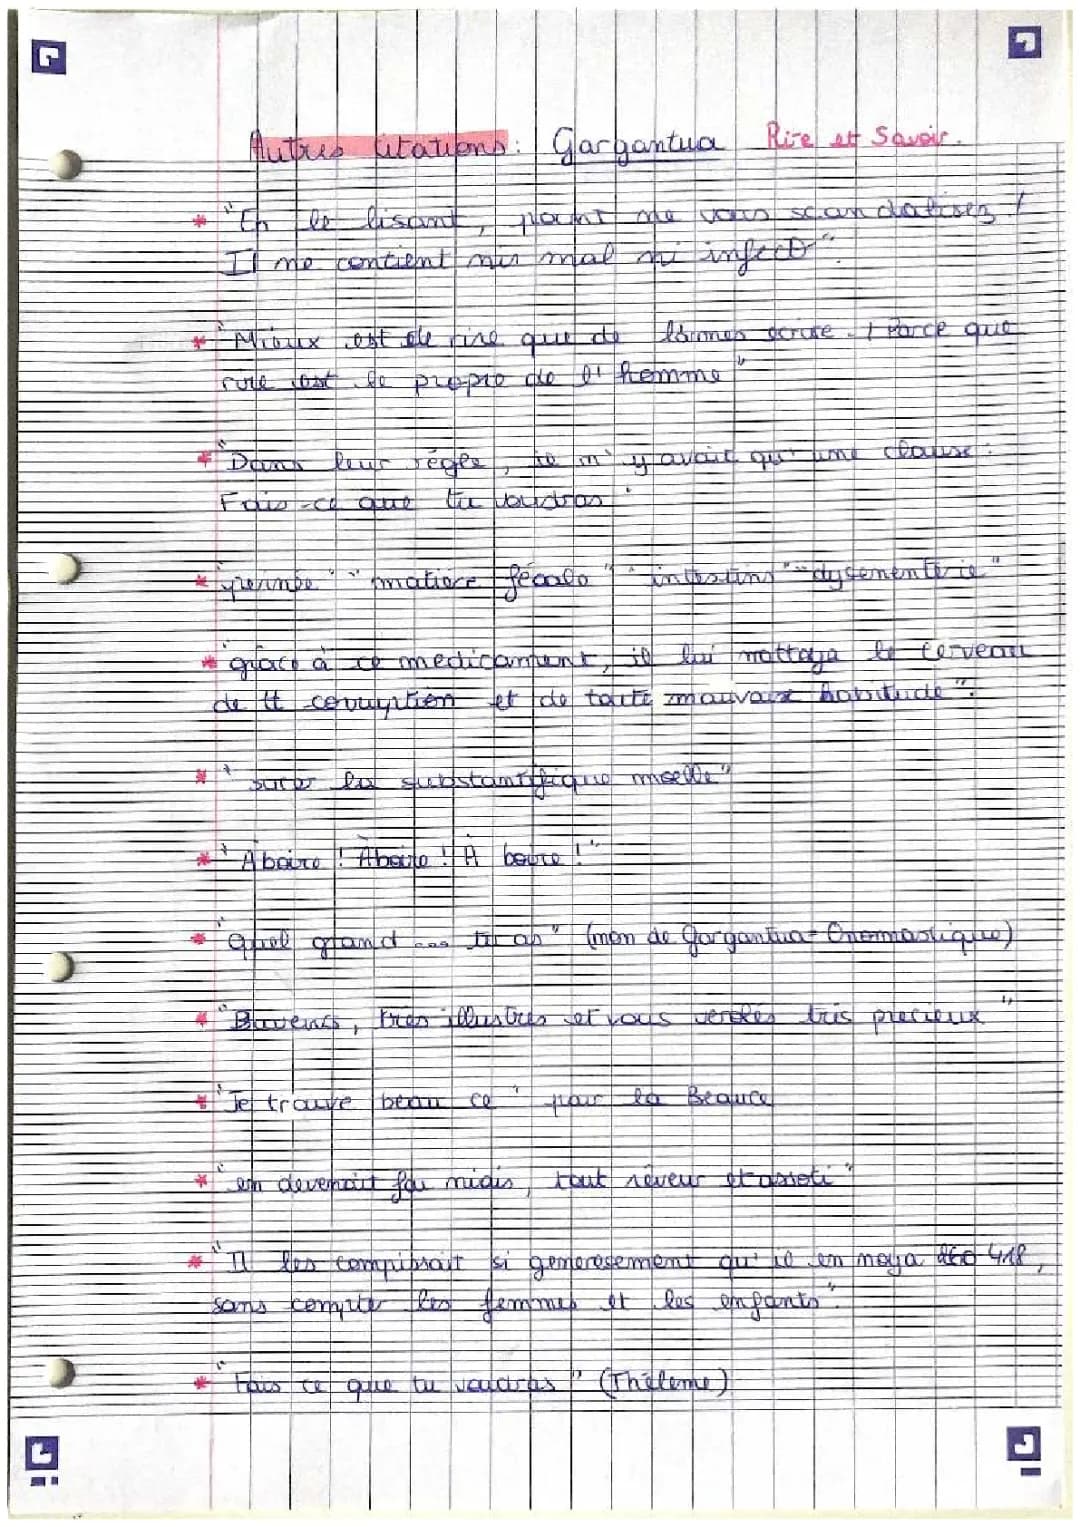 Autres citations : Gargantua Rire et Savoir.
* "En le lisant, point ne vous scandalisez /
Il ne contient nir mal ni infect".
* "Mieux est de rire que de larmes écrire / Parce que
rire est le propre de l'homme"
* "Dans leur règle, il n'y avait qu'une clause :
Fais-ce que tu voudras"
* "matière fécale" "intestins" "dysenenterie"
* "grâce à ce médicament, il lui nattoya le cerveau
de tt corruption et de toute mauvaise habitude".
* "sucer la substantifique moelle"
* "À boire ! À boire ! À boire !"
* "Quel grand ... tu as" (nom de Gargantua = Onomastique)
* "Buveurs, très illustres et vous verolés très précieux"
* "Je trouve beau ce" pour la Beauce
* "en devenait fou niais, tout rêveur et assoti"
* "Il les compissait si generesement qu'il en noya 260 418,
sans compte les femmes et les enfants".
* "Fais ce que tu voudras" (Thélème)